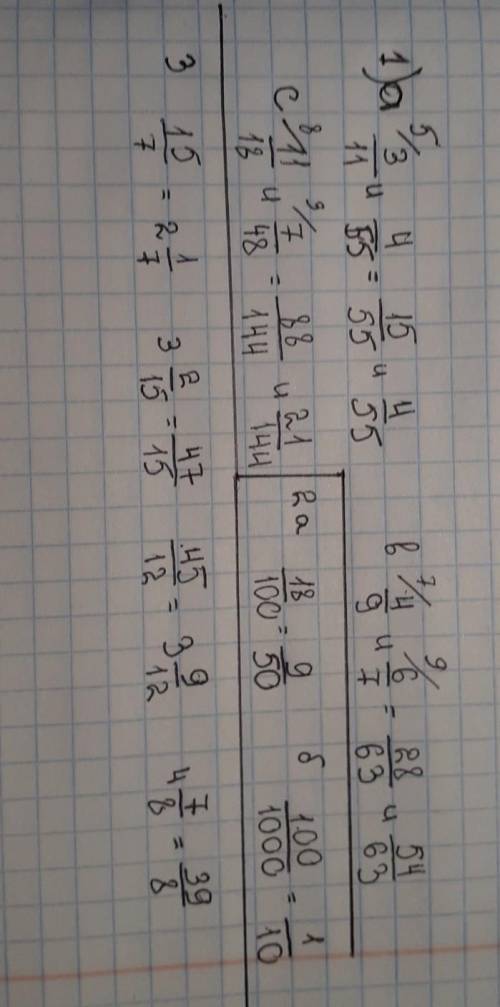 1) а 5/ 3/11 и 4/55 = 15/55 и 4/55 в 7/ 4/9 и 9/ 6/7 = 28/63 и 54/63
с 8/ 11/18 и 9/ 7/48 = 88/144 и 21/144
2а 18/100 = 9/50 б 100/1000 = 1/10
3 15/7 = 2 1/7 3 2/15 = 47/15 45/12 = 3 9/12 4 7/8 = 39/8